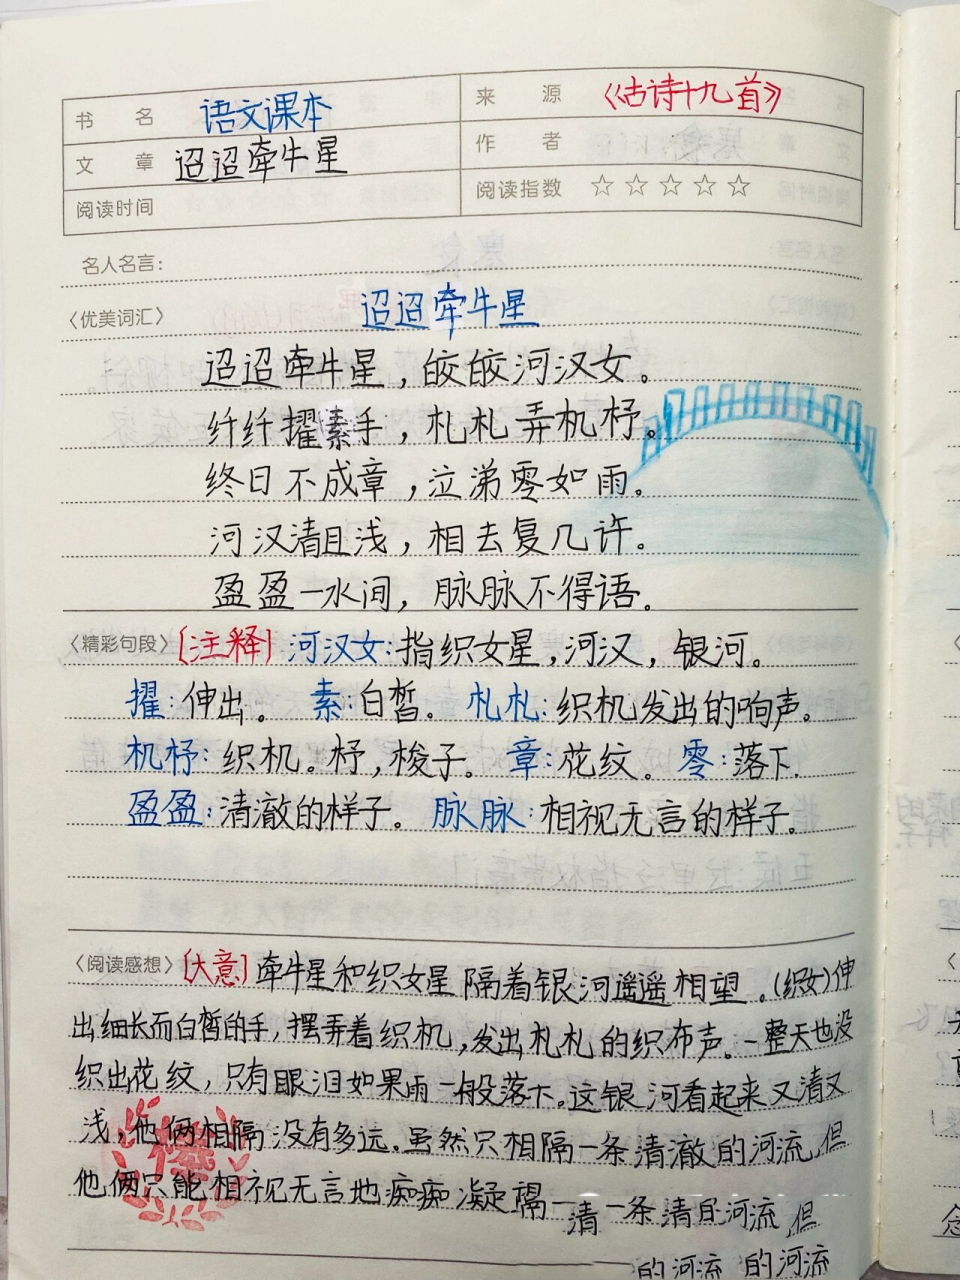 书 名 语文课本 来 源 《古诗十九首》
文 章 迢迢牵牛星 作 者
阅读时间 阅读指数 ☆☆☆☆☆
名人名言:
〈优美词汇〉 迢迢牵牛星
迢迢牵牛星,皎皎河汉女。
纤纤擢素手,札札弄机杼。
终日不成章,泣涕零如雨。
河汉清且浅,相去复几许。
盈盈一水间,脉脉不得语。
〈精彩句段〉[注释] 河汉女:指织女星,河汉,银河。
擢:伸出。 素:白皙。 札札:织机发出的响声。
机杼:织机。杼,梭子。 章:花纹。 零:落下.
盈盈:清澈的样子。 脉脉:相视无言的样子。
〈阅读感想〉[大意] 牵牛星和织女星隔着银河遥遥相望。(织女)伸
出细长而白皙的手,摆弄着织机,发出札札的织布声。一整天也没
织出花纹,只有眼泪如果雨一般落下。这银河看起来又清又
浅,他俩相隔没有多远.虽然只相隔一条清澈的河流,但
他俩只能相视无言地痴痴凝隔一清一条清的河流,但
的河流 的河流